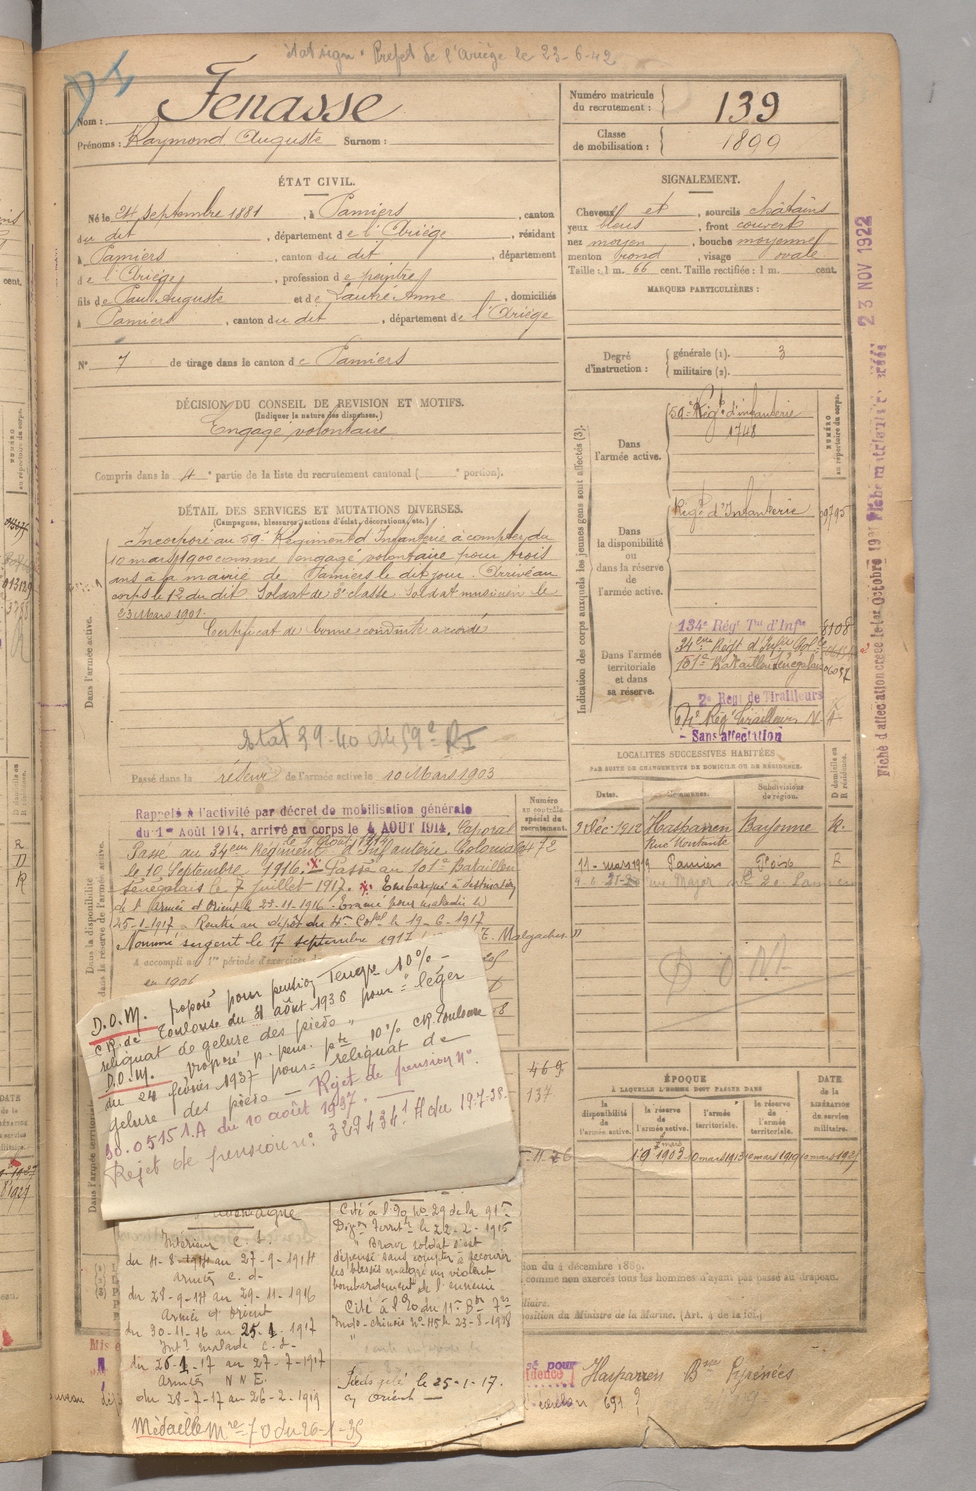 état sign. Préfet de l'Ariège le 23-6-42
Nom : Fenasse
Prénoms : Raymond Auguste Surnom :
Numéro matricule du recrutement : 139
Classe de mobilisation : 1899
ÉTAT CIVIL.
Né le 24 septembre 1881, à Pamiers, canton
du dit, département de l'Ariège, résidant
à Pamiers, canton du dit, département
de l'Ariège, profession de peintre
fils de Paul Auguste et de Lautré Anne, domiciliés
à Pamiers, canton du dit, département de l'Ariège
N° 7 de tirage dans le canton de Pamiers
SIGNALEMENT.
Cheveux et, sourcils châtains
yeux bleus, front couvert
nez moyen, bouche moyenne
menton rond, visage ovale
Taille : 1 m. 66 cent. Taille rectifiée : 1 m. cent.
MARQUES PARTICULIÈRES :
Degré d'instruction : générale (1). 3
militaire (2).
DÉCISION DU CONSEIL DE REVISION ET MOTIFS.
(Indiquer la nature des dispenses.)
Engagé volontaire
Compris dans la 4e partie de la liste du recrutement cantonal ( e portion).
DÉTAIL DES SERVICES ET MUTATIONS DIVERSES.
(Campagnes, blessures, actions d'éclat, décorations, etc.)
Dans l'armée active.
Incorporé au 59e Régiment d'Infanterie à compter du
10 mars 1900 comme engagé volontaire pour trois
ans à la mairie de Pamiers le dit jour. Arrivé au
corps le 12 du dit. Soldat de 2e classe. Soldat musicien le
23 Mars 1901.
Certificat de bonne conduite accordé
Etat 39-40 d 59e RI
Passé dans la réserve de l'armée active le 10 Mars 1903
Indication des corps auxquels les jeunes gens sont affectés (3).
NUMÉRO au répertoire du corps.
Dans l'armée active.
59e Régt d'infanterie
1748
Dans la disponibilité ou dans la réserve de l'armée active.
Régt d'Infanterie 09795
Dans l'armée territoriale et dans sa réserve.
134e Régt Tal d'Infie 8108
34eme Régt d'Infie Colle
101e Bataillon Sénégalais
2e Régt de Tirailleurs
Rég Tirailleurs
- Sans affectation
Fiche d'affectation créée le 1er Octobre Fiche matricule créée 23 NOV 1922
LOCALITÉS SUCCESSIVES HABITÉES
PAR SUITE DE CHANGEMENTS DE DOMICILE OU DE RÉSIDENCE.
Dates. Communes. Subdivisions de région. D domicile ou R résidence.
2 Déc. 1912 Hasparren Bayonne R.
11 - mars 1919 Pamiers Foix R
D O M
Dans la disponibilité dans la réserve de l'armée active.
Numéro au contrôle spécial du recrutement.
Rappelé à l'activité par décret de mobilisation générale
du 1er Août 1914, arrivé au corps le 4 AOUT 1914, Caporal
Passé au 34eme Régiment d'Infanterie Coloniale
le 10 Septembre 1916. x Passé au 101e Bataillon
Sénégalais le 7 juillet 1917. x Embarqué à destination
de l'Armée d'Orient le 29-11-1916. Evacué pour maladie le
25-1-1917. Rentré au dépôt du 4e Col le 19-6-1917
Nommé sergent le 17 septembre 1917 Malgaches
A accompli une 1re période d'exercices
en 1906
472
469
137
D.O.M. proposé pour pension Temp. 10% -
C.R. de Toulouse du 31 août 1936 pour : léger
reliquat de gelure des pieds "
D.O.M. Proposé p. pens. pte 10% C.R. Toulouse
du 24 février 1937 pour : reliquat de
gelure des pieds Rejet de pension n°
30.05151.A du 10 août 1937.
Rejet de pension n° 329434.H du 19-7-38.
ÉPOQUE
À LAQUELLE L'HOMME DOIT PASSER DANS
la disponibilité de l'armée active. la réserve de l'armée active. l'armée territoriale. la réserve de l'armée territoriale.
DATE de la LIBÉRATION du service militaire.
10 mars 1903 10 mars 1913 10 mars 1919 10 mars 1927
Intérieur C.S.
du 4-8-1914 au 27-9-1914
Armées C. d.
du 28-9-14 au 29-11-1916
Armée d'Orient
du 30-11-16 au 25-1-1917
Intr malade C.S.
du 26-1-17 au 27-7-1917
Armées N N E.
du 28-7-17 au 26-2-1919
Médaille Mre 70 du 26-1-35
Cité à l'O. No 29 de la 91e
Don Territle le 22-2-1915
" Brave soldat s'est
dépensé sans compter à secourir
les blessés malgré un violent
bombardement de l'ennemi
Cité à l'O du 11e Bon
Indo-chinois n° 115 le 23-8-1918
Pieds gelés le 25-1-17.
en Orient -
du 4 décembre 1889.
comme non exercés tous les hommes n'ayant pas passé au drapeau.
position du Ministre de la Marine. (Art. 4 de la loi.)
Hasparren Bses Pyrénées